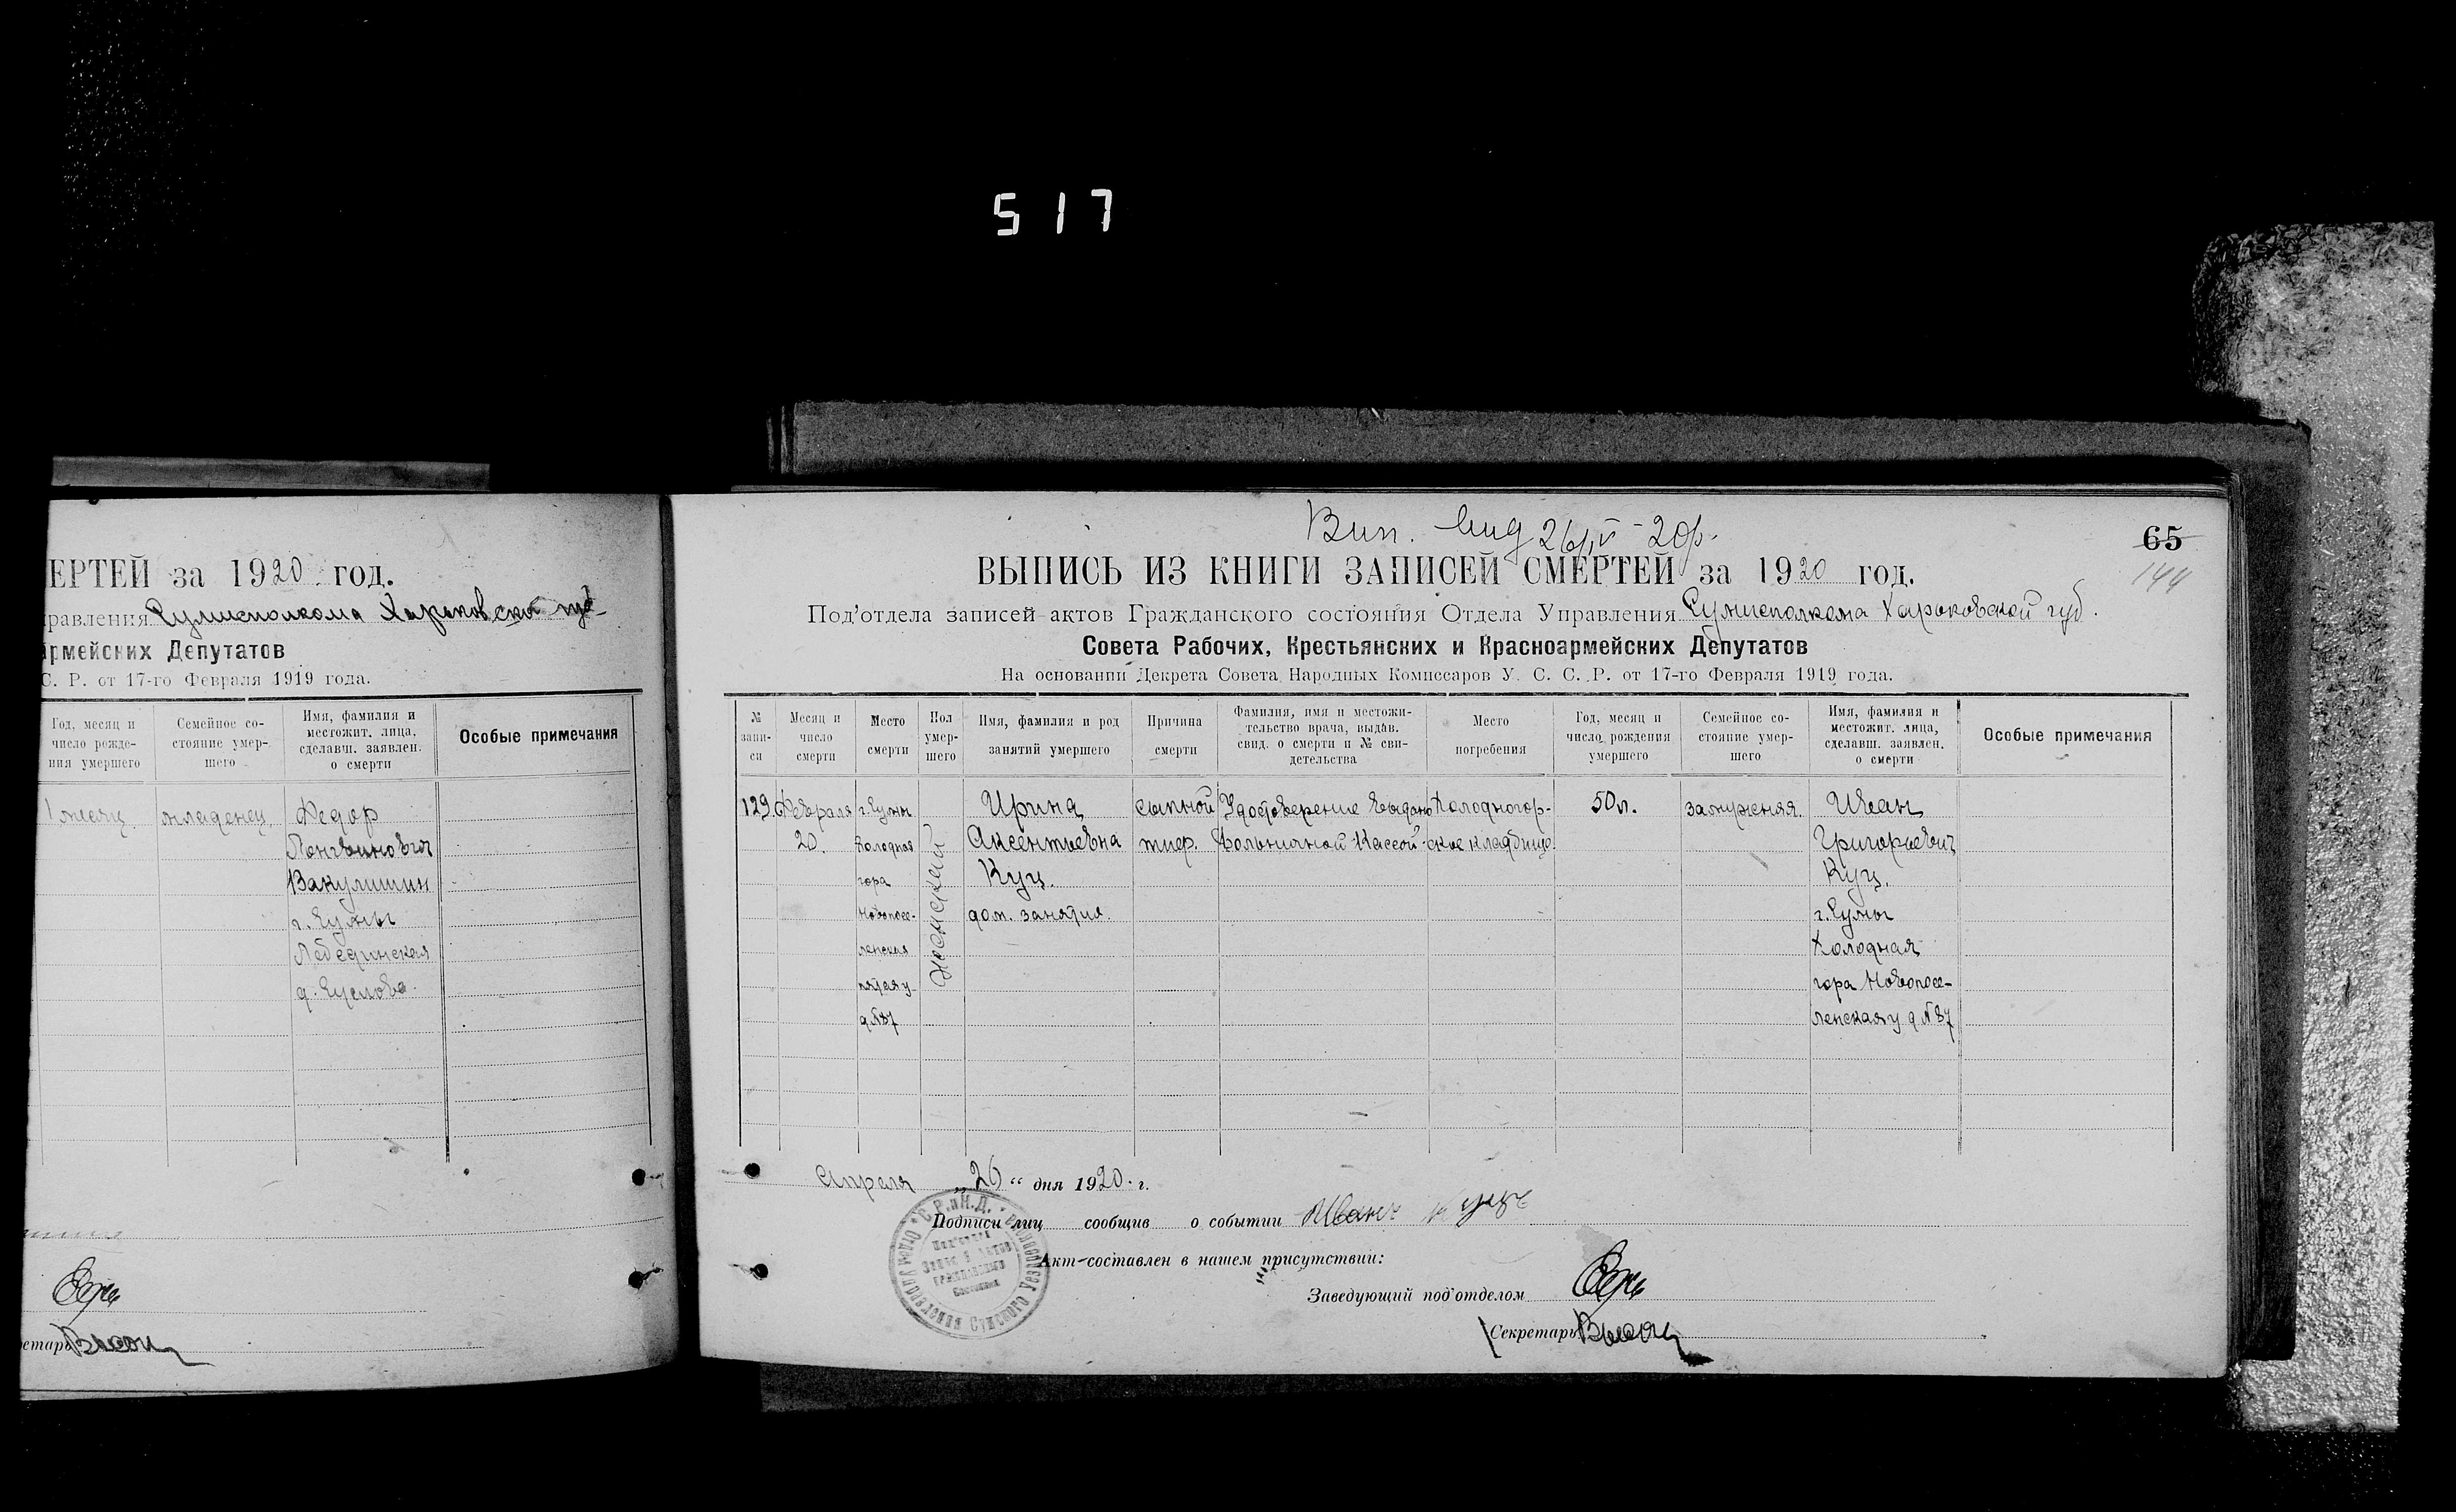 517
ЕРТЕЙ за 1920 год.
равления Сумисполкома Харьковской губ.
армейских Депутатов
С. Р. от 17-го Февраля 1919 года.
Год, месяц и
число рожде-
ния умершего
Семейное со-
стояние умер-
шего
Имя, фамилия и
местожит. лица,
сделавш. заявлен.
о смерти
Особые примечания
1 месяц
младенец
Федор
Логвинович
Вакулишин
г. Сумы
Лебединская
д. Суслова
етарь
Вип. вид 26/IV-20р.
65
144
ВЫПИСЬ ИЗ КНИГИ ЗАПИСЕЙ СМЕРТЕЙ за 1920 год.
Под'отдела записей актов Гражданского состояния Отдела Управления Сумисполкома Харьковской губ.
Совета Рабочих, Крестьянских и Красноармейских Депутатов
На основании Декрета Совета Народных Комиссаров У. С. С. Р. от 17-го Февраля 1919 года.
№
запи-
си
Месяц и
число
смерти
Место
смерти
Пол
умер-
шего
Имя, фамилия и род
занятий умершего
Причина
смерти
Фамилия, имя и местожи-
тельство врача, выдав.
свид. о смерти и № сви-
детельства
Место
погребения
Год, месяц и
число рождения
умершего
Семейное со-
стояние умер-
шего
Имя, фамилия и
местожит. лица,
сделавш. заявлен.
о смерти
Особые примечания
129.
Февраля
20.
г. Сумы
Холодная
гора
Новопосе-
ленская
пятая у.
д. №37
женский
Ирина
Аксентьевна
Куц.
дом. занятия.
сыпной
тиф.
Удостоверение выдано
Больничной Кассой
Холодногор-
ское кладбище.
50 л.
замужняя.
Иван
Григорьевич
Куц.
г. Сумы
Холодная
гора Новопосе-
ленская у д №37
Апреля „26“ дня 1920 г.
Подписи лиц сообщив о событии Иванъ Куцъ
Акт составлен в нашем присутствии:
Заведующий под'отделом
Секретарь